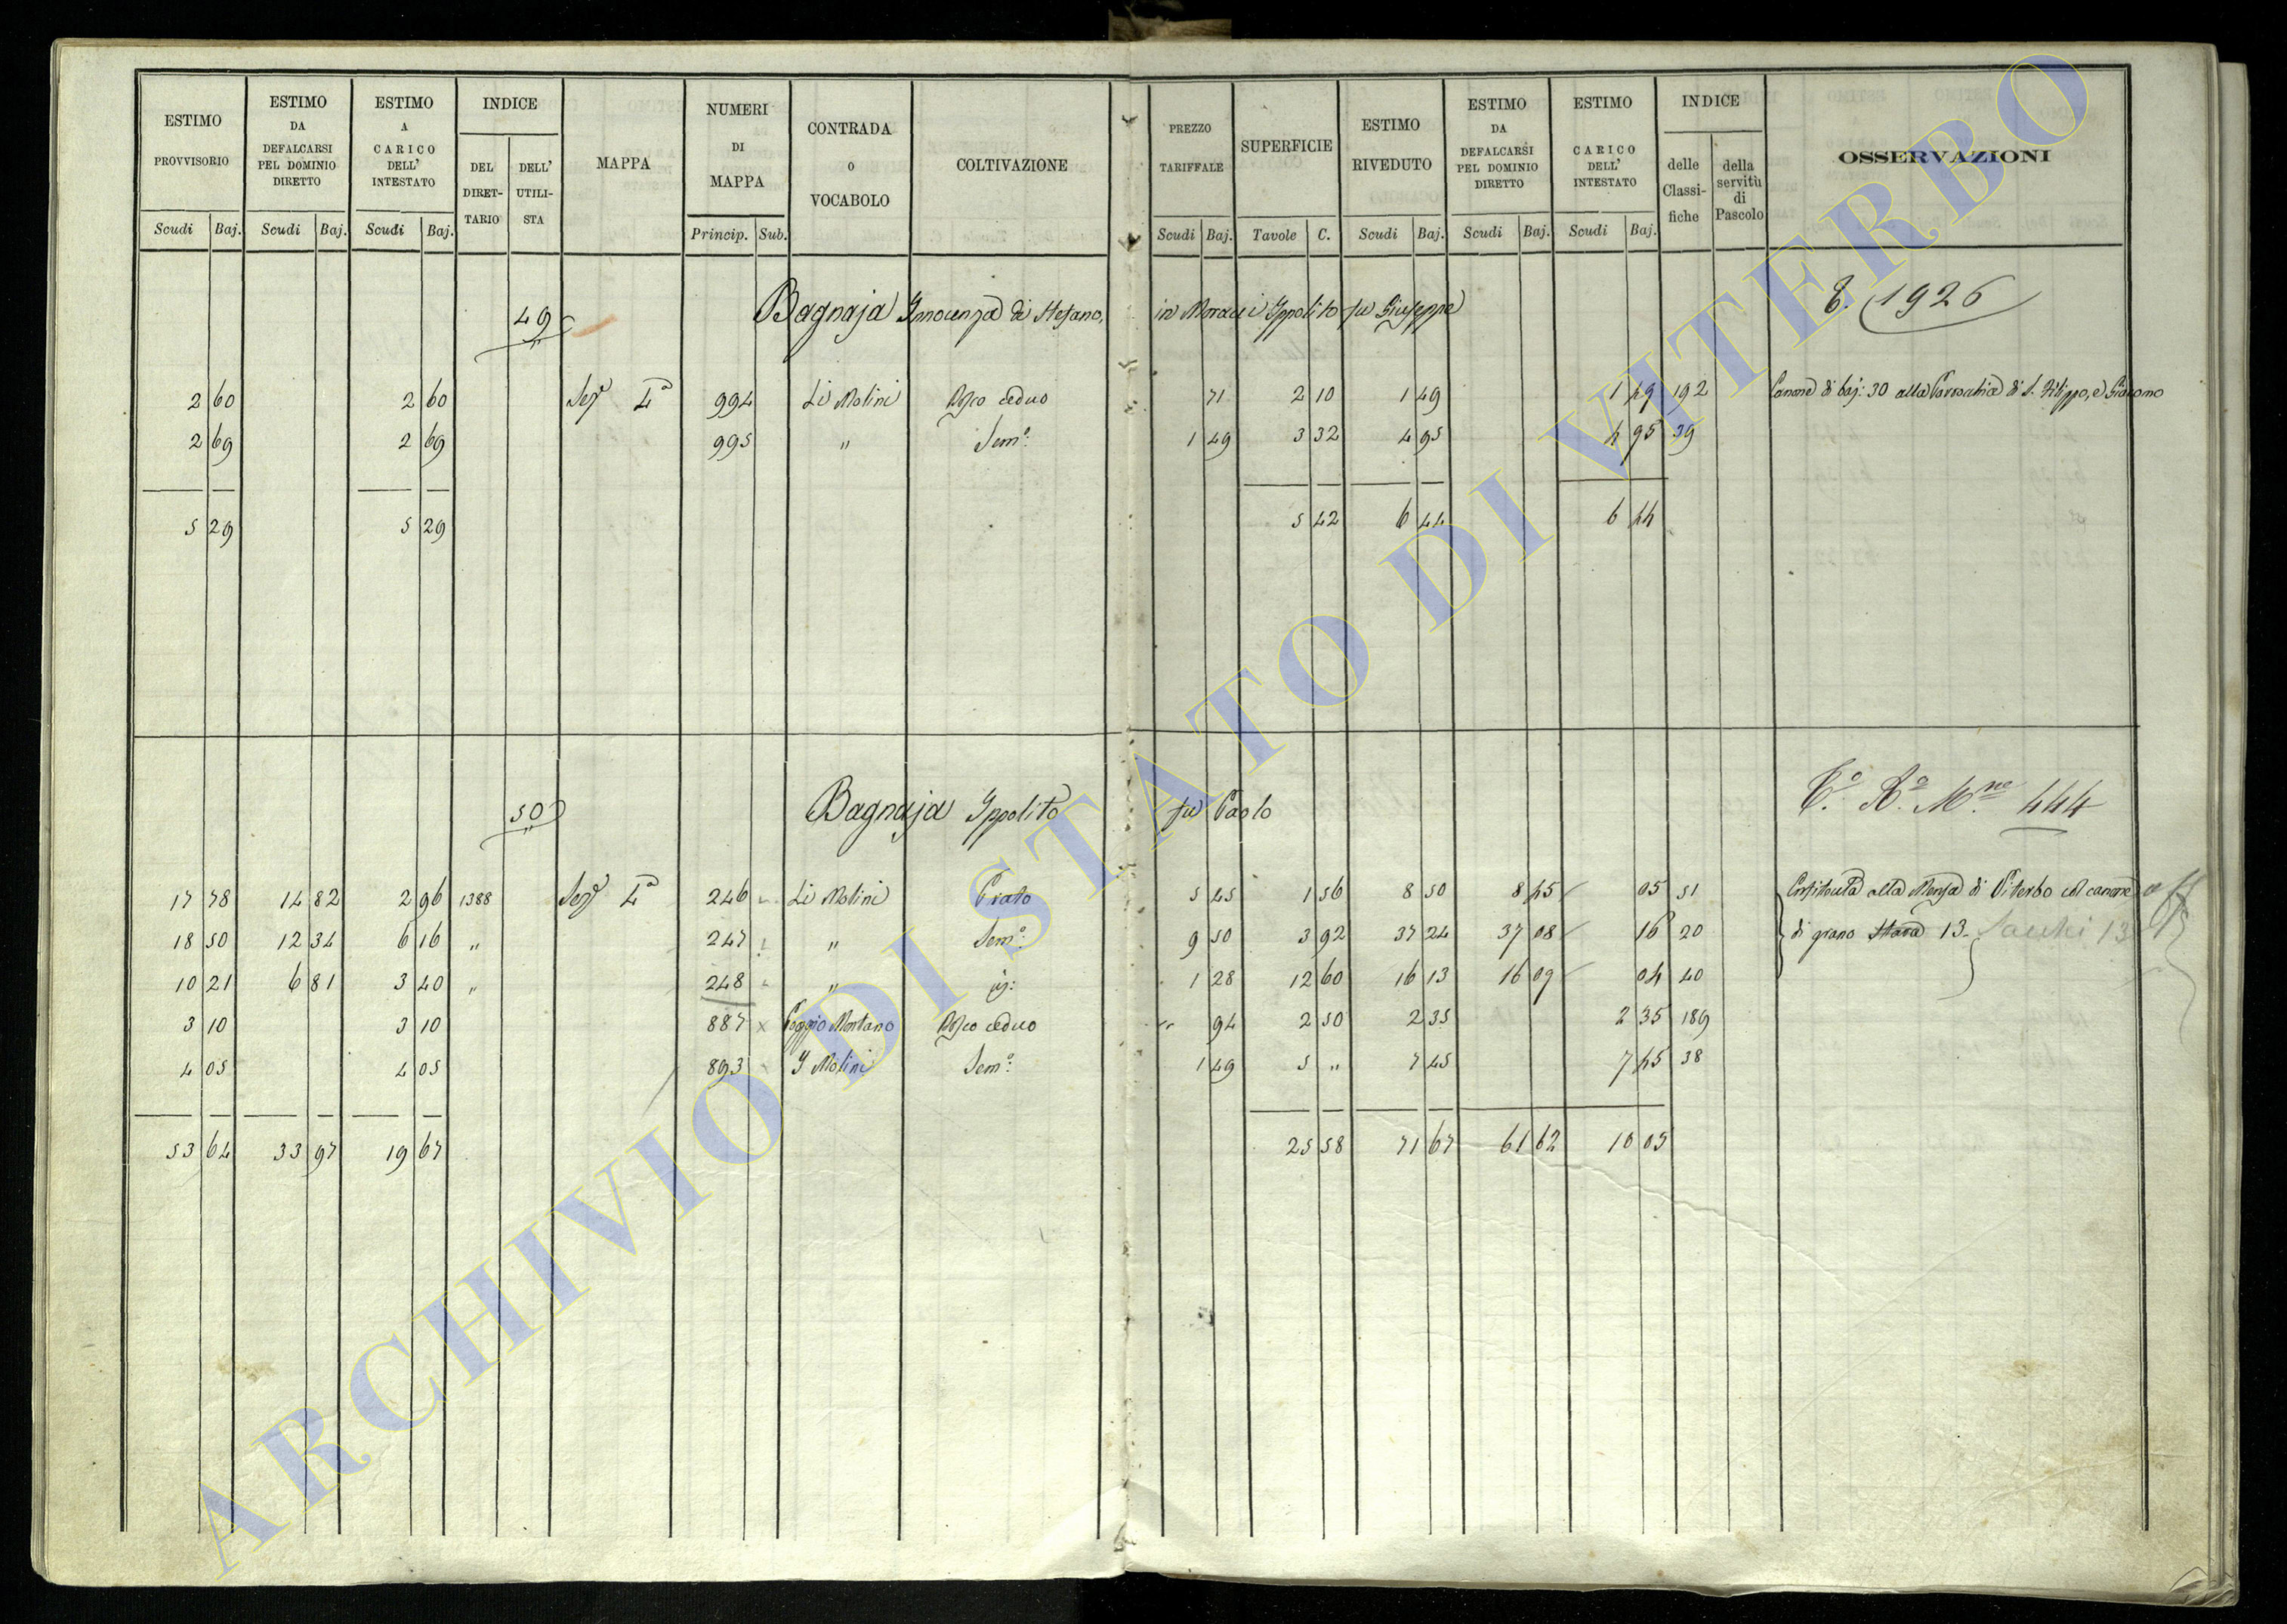 ESTIMO PROVVISORIO Scudi Baj. | ESTIMO DA DEFALCARSI PEL DOMINIO DIRETTO Scudi Baj. | ESTIMO A CARICO DELL' INTESTATO Scudi Baj. | INDICE DEL DIRETTARIO | DELL' UTILISTA | MAPPA | NUMERI DI MAPPA Princip. Sub. | CONTRADA O VOCABOLO | COLTIVAZIONE | PREZZO TARIFFALE Scudi Baj. | SUPERFICIE Tavole C. | ESTIMO RIVEDUTO Scudi Baj. | ESTIMO DA DEFALCARSI PEL DOMINIO DIRETTO Scudi Baj. | ESTIMO A CARICO DELL' INTESTATO Scudi Baj. | INDICE delle Classifiche | della servitù di Pascolo | OSSERVAZIONI
49 Bagnaja Innocenza di Stefano, in Ippolito fu Giuseppe 1926
2 60 2 60 Seze 4a 994 Li Molini Bosco ceduo 71 2 10 1 49 1 49 192 Canone di baj: 30 alla Parrochia di S. Filippo, e Giacomo
2 69 2 69 995 " Semo: 1 49 3 32 4 95 4 95 39
5 29 5 29 5 42 6 44 6 44
50 Bagnaja Ippolito fu Paolo 444
17 78 14 82 2 96 1388 Seze 4a 246 Li Molini Prato 5 45 1 56 8 50 8 45 05 51 alla Mensa di Viterbo col canone
18 50 12 34 6 16 " 247 " Semo: 9 50 3 92 37 24 37 08 16 20 di grano 13 13
10 21 6 81 3 40 " 248 " 1 28 12 60 16 13 16 09 04 40
3 10 3 10 887 x Poggio Montano Bosco ceduo " 94 2 50 2 35 2 35 189
4 05 4 05 893 I Molini Semo: 1 49 5 " 7 45 7 45 38
53 64 33 97 19 67 25 58 71 67 61 62 10 05
ARCHIVIO DI STATO DI VITERBO